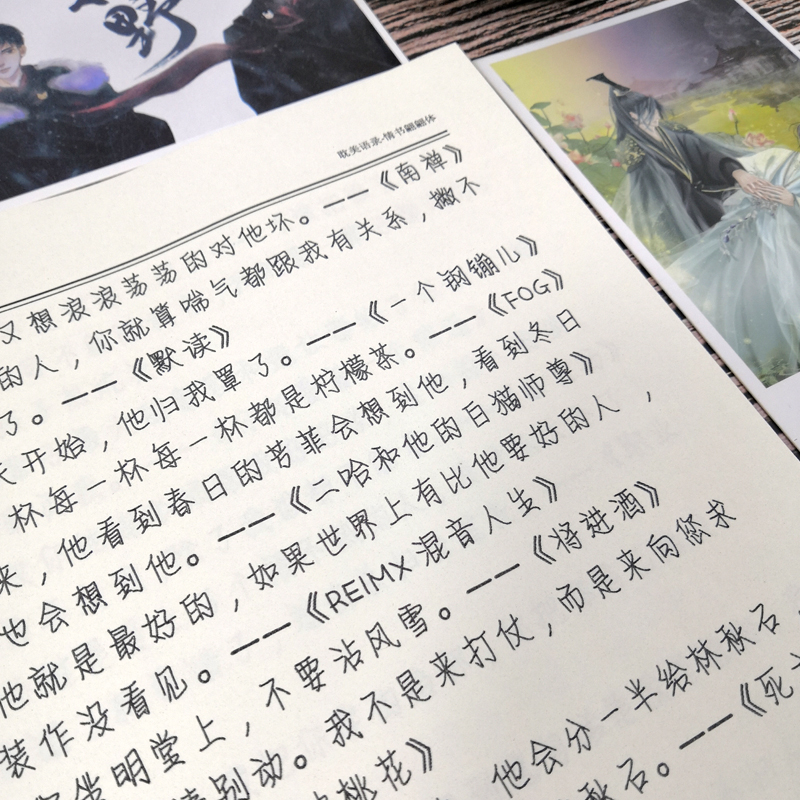 野
耽美语录·情书翩翩体
又想浪浪荡荡的对他坏。——《南禅》
的人，你就算喘气都跟我有关系，撇不
了。——《默读》
天开始，他归我罩了。——《一个钢镚儿》
杯每一杯每一杯都是柠檬茶。——《FOG》
来，他看到春日的芳菲会想到他，看到冬日
也会想到他。——《二哈和他的白猫师尊》
他就是最好的，如果世界上有比他要好的人，
装作没看见。——《REIMX 混音人生》
坐明堂上，不要沾风雪。——《将进酒》
别动。我不是来打仗，而是来向您求
桃花》
他会分一半给林秋石，
秋石。——《死